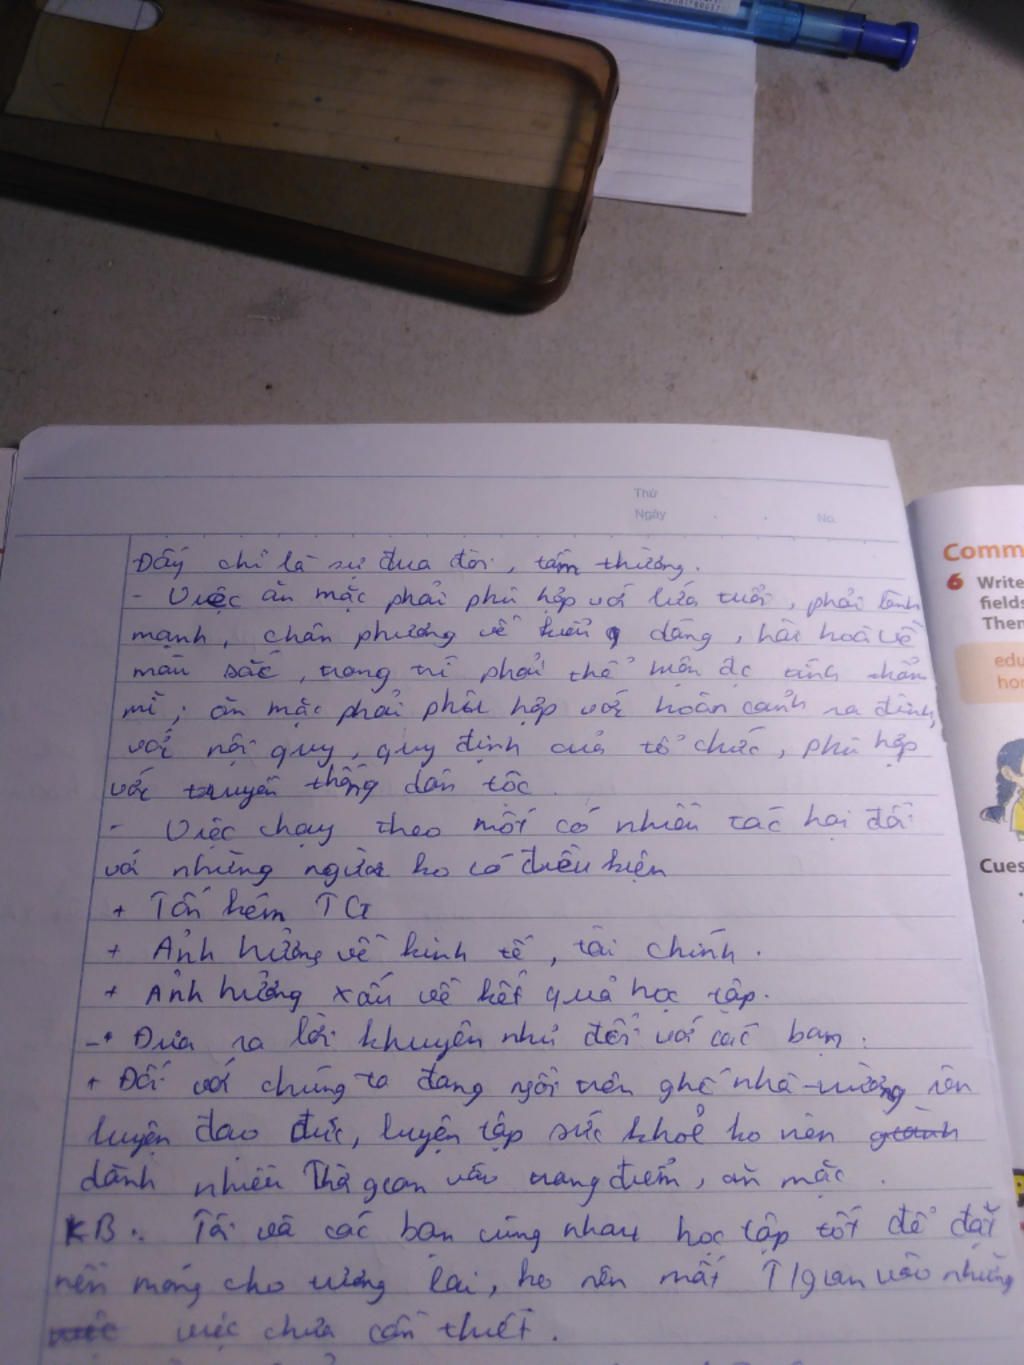 Thứ
Ngày
No.
Đấy chỉ là sự đua đòi, tầm thường.
- Việc ăn mặc phải phù hợp với lứa tuổi, phải lành
mạnh, chân phương về kiểu dáng, hài hoà về
màu sắc, trang trí phải thể hiện đc tính thẩm
mĩ; ăn mặc phải phù hợp với hoàn cảnh ra đình,
với nội quy, quy định của tổ chức, phù hợp
với truyền thống dân tộc.
- Việc chạy theo mốt có nhiều tác hại đối
với những người ko có điều kiện
+ Tốn kém TG
+ Ảnh hưởng về kinh tế, tài chính.
+ Ảnh hưởng xấu về kết quả học tập.
- Đưa ra lời khuyên nhủ đối với các bạn.
+ Đối với chúng ta đang ngồi trên ghế nhà trường rèn
luyện đạo đức, luyện tập sức khoẻ ko nên
dành nhiều thời gian vào trang điểm, ăn mặc.
KB: Tôi và các bạn cùng nhau học tập tốt để đặt
nền móng cho tương lai, ko nên mất T/gian vào những
việc chưa cần thiết.
Comm
6 Write
fields
Then
edu
hor
Cues